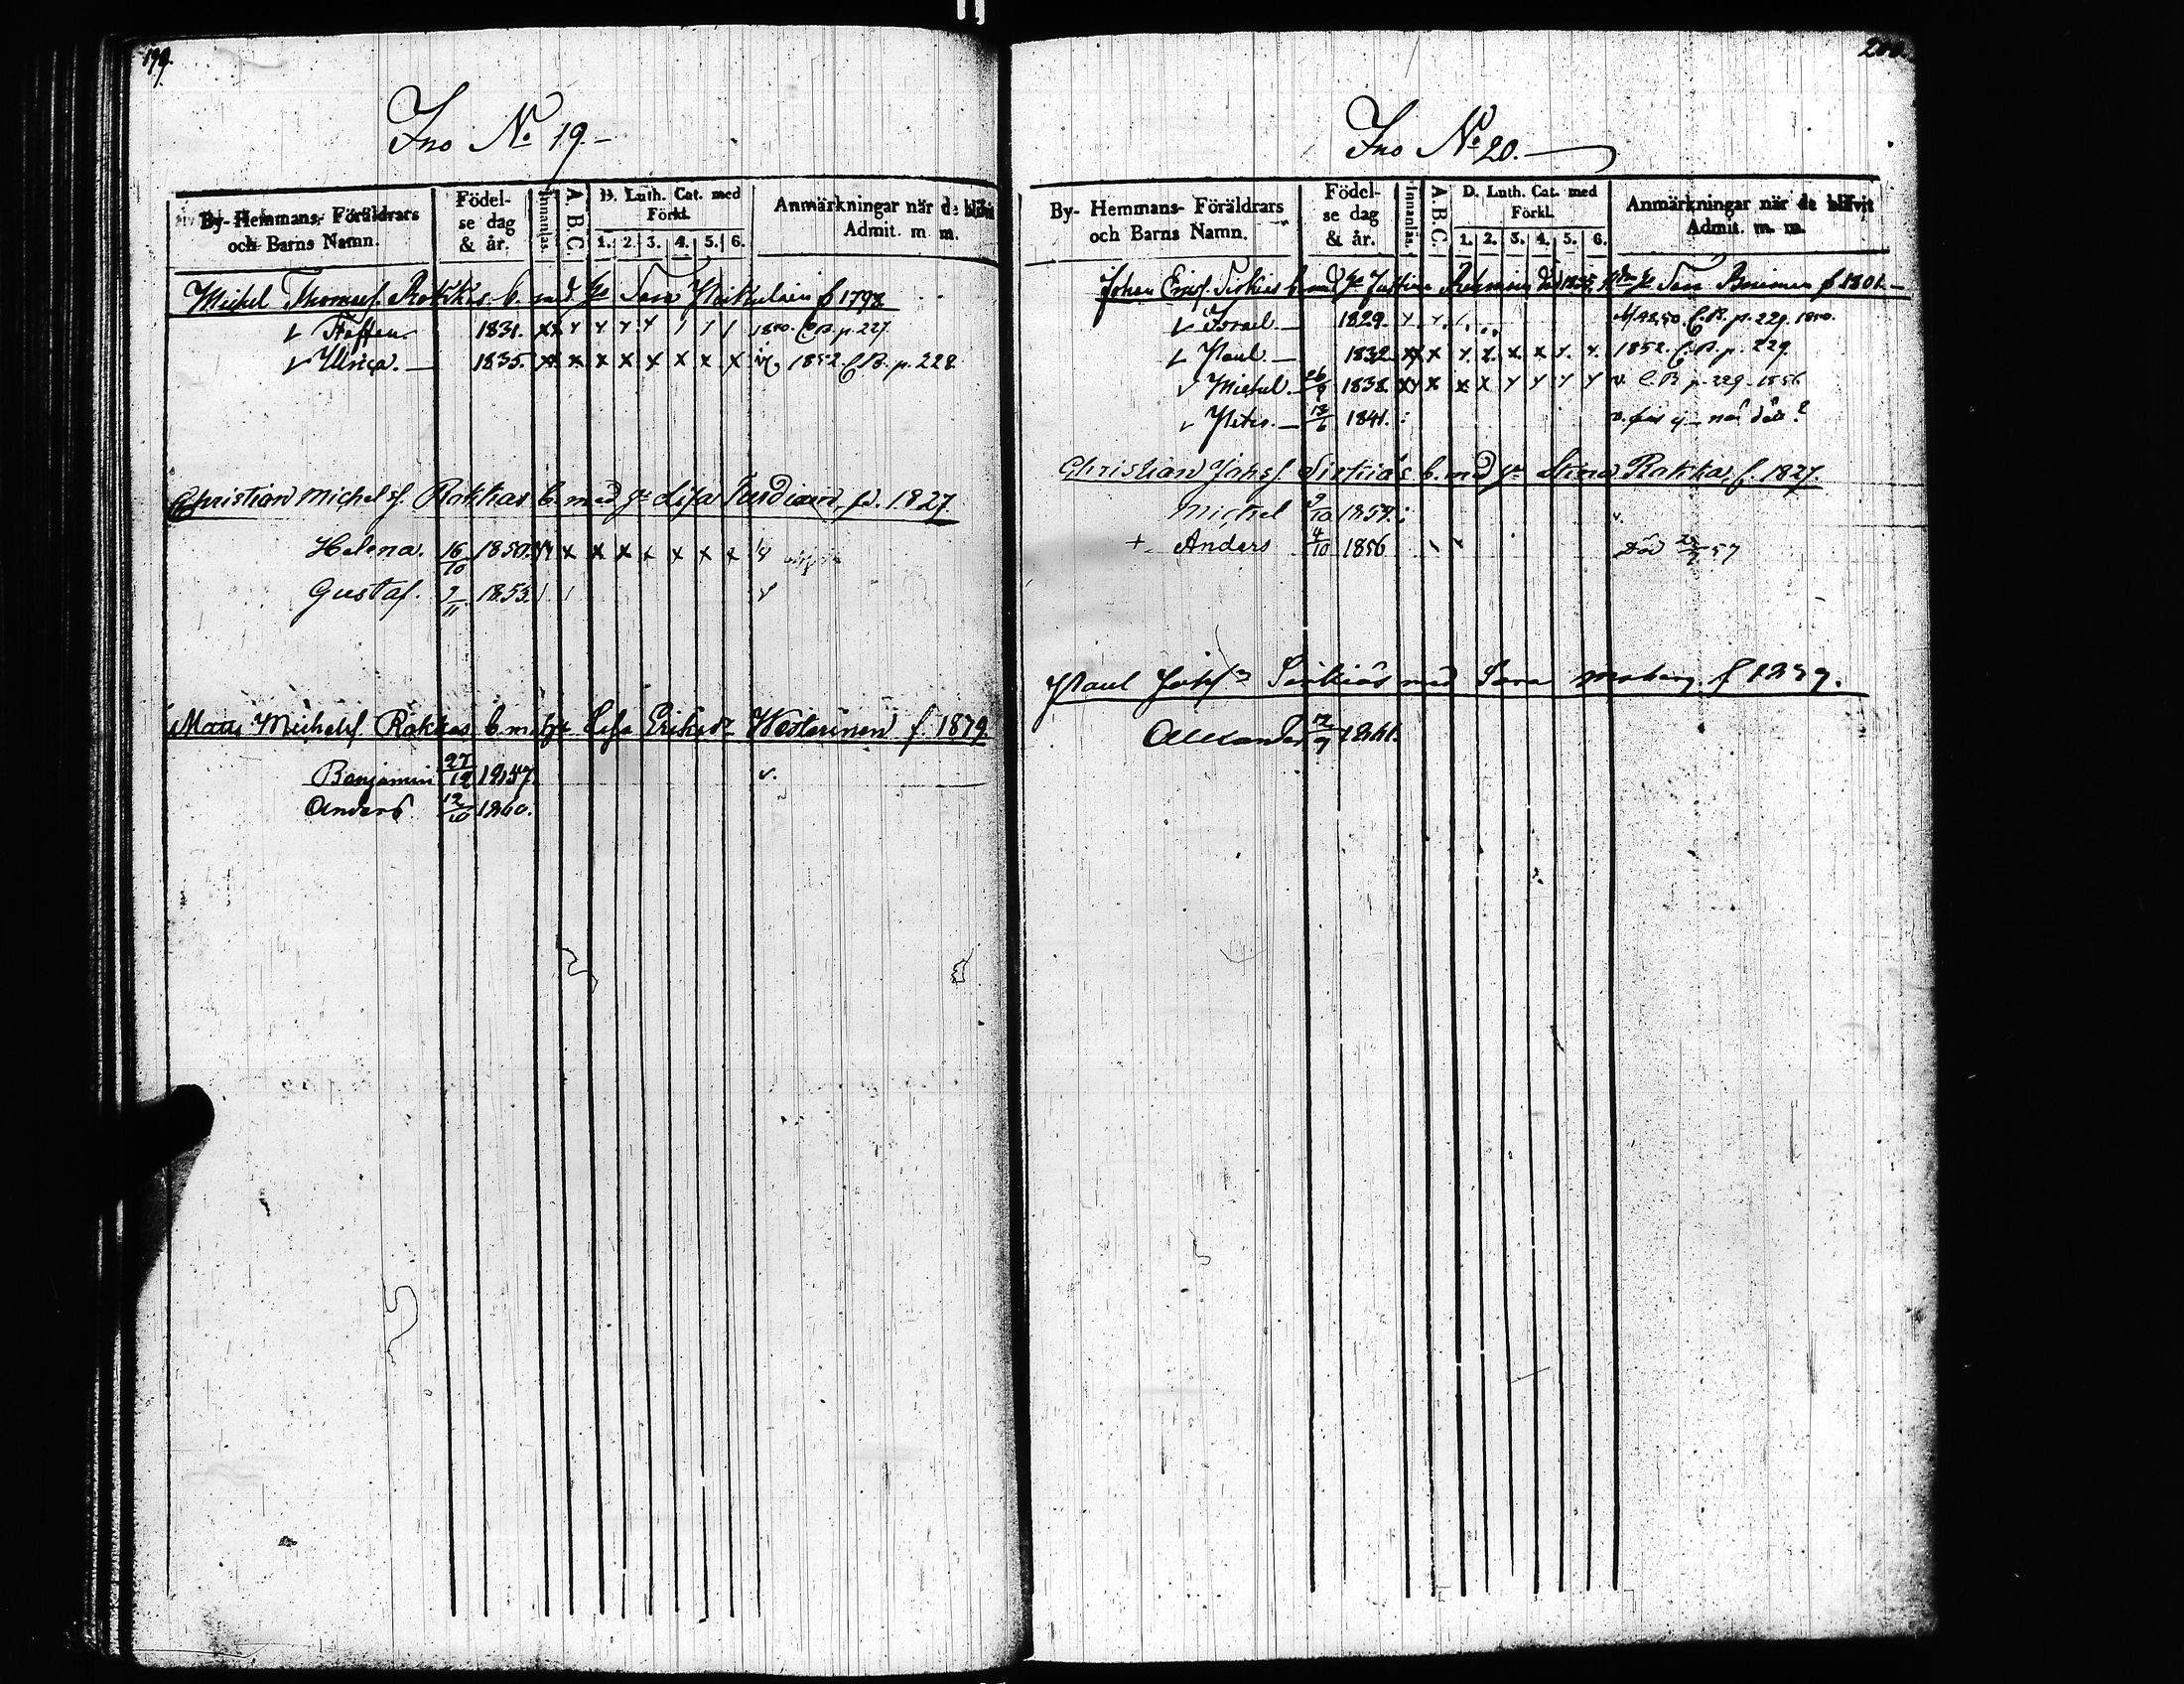 199.
Ino No 19.
By- Hemmans- Föräldrars och Barns Namn.
Födelse dag & år.
Innanläs.
A. B. C.
D. Luth. Cat. med Förkl.
1. 2. 3. 4. 5. 6.
Anmärkningar när de blifvit Admit. m. m.
Michel Thomass. Rokkas b. med H:u f 1792
Staffan 1831. x x y y y y / / / 1850. C.B. p. 227.
Ulrica. 1835. x x x x x x x x 1852. C.B. p. 228
Christian Michelss. Rokkas b. med H:u Lisa fd. 1827
Helena. 16/10 1850. x x x x x x x
Gustaf. 9/11 1853. / / v
Matts Michelss. Rokkas b. m H:u Lisa Eriksdr Westerinen f. 1829.
Benjamin 27/12 1857. v.
Anders 12/10 1860.
200.
Ino No 20.
By- Hemmans- Föräldrars och Barns Namn.
Födelse dag & år.
Innanläs.
A. B. C.
D. Luth. Cat. med Förkl.
1. 2. 3. 4. 5. 6.
Anmärkningar när de blifvit Admit. m. m.
Johan Erics. Sirkiäs b. med H:u f 1801.
Israel 1829. C.B. p. 229. 1850.
Paul. 1832 xx x y. x. x. x y. y. 1852. C.B. p. 229
Michel. 26/9 1838. xy x x x y y y y v. C.B p. 229. 1856
Peter. 13/6 1841. :
Christian Johss. Sirkiäs b. med H:u Stina Rokka, f. 1827.
Michel 9/10 1854. : v.
+. Anders 4/10 1856 Död 57
Paul Johss Sirkiäs med Sara f 1839.
Alexander 12/9 1861.